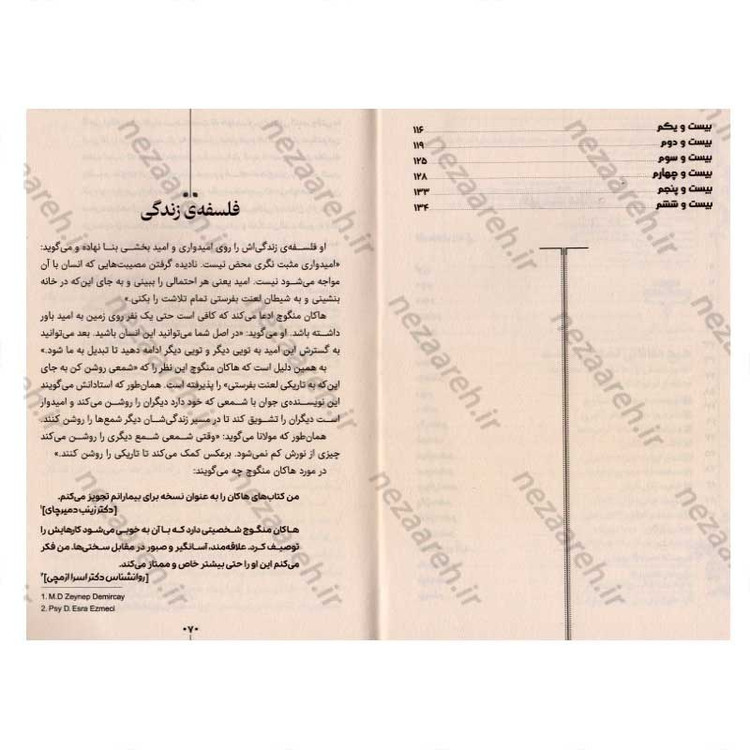 بیست و یکم ۱۱۶
بیست و دوم ۱۱۹
بیست و سوم ۱۲۵
بیست و چهارم ۱۲۸
بیست و پنجم ۱۳۳
بیست و ششم ۱۳۴
فلسفه‌ی زندگی
او فلسفه‌ی زندگی‌اش را روی امیدواری و امید بخشی بنا نهاده و می‌گوید:
«امیدواری مثبت نگری محض نیست. نادیده گرفتن مصیبت‌هایی که انسان با آن
مواجه می‌شود نیست. امید یعنی هر احتمالی را ببینی و به جای این‌که در خانه
بنشینی و به شیطان لعنت بفرستی تمام تلاشت را بکنی.»
هاکان منگوچ ادعا می‌کند که کافی است حتی یک نفر روی زمین به امید باور
داشته باشد. او می‌گوید: «در اصل شما می‌توانید این انسان باشید. بعد می‌توانید
به گسترش این امید به تویی دیگر و تویی دیگر ادامه دهید تا تبدیل به ما شود.»
به همین دلیل است که هاکان منگوچ این نظر را که «شمعی روشن کن به جای
این‌که به تاریکی لعنت بفرستی» را پذیرفته است. همان‌طور که استادانش می‌گویند
این نویسنده‌ی جوان با شمعی که خود دارد دیگران را روشن می‌کند و امیدوار
است دیگران را تشویق کند تا در مسیر زندگی‌شان دیگر شمع‌ها را روشن کنند.
همان‌طور که مولانا می‌گوید: «وقتی شمعی شمع دیگری را روشن می‌کند
چیزی از نورش کم نمی‌شود. برعکس کمک می‌کند تا تاریکی را روشن کند.»
در مورد هاکان منگوچ چه می‌گویند:
من کتاب‌های هاکان را به عنوان نسخه برای بیمارانم تجویز می‌کنم.
[دکتر زینب دمیرچای]¹
هاکان منگوچ شخصیتی دارد که با آن به خوبی می‌شود کارهایش را
توصیف کرد. علاقه‌مند، آسانگیر و صبور در مقابل سختی‌ها. من فکر
می‌کنم این او را حتی بیشتر خاص و ممتاز می‌کند.
[روانشناس دکتر اسرا ازمچی]²
1. M.D Zeynep Demircay
2. Psy D. Esra Ezmeci
۰۷۰
nezaareh.ir